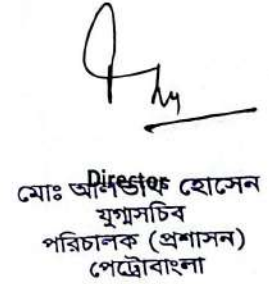 Director
মোঃ আলতাফ হোসেন
যুগ্মসচিব
পরিচালক (প্রশাসন)
পেট্রোবাংলা